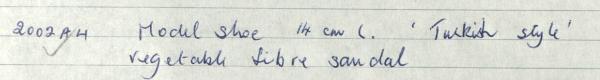 2002A4 Model shoe 14 cm L. 'Turkish style'
vegetable fibre sandal